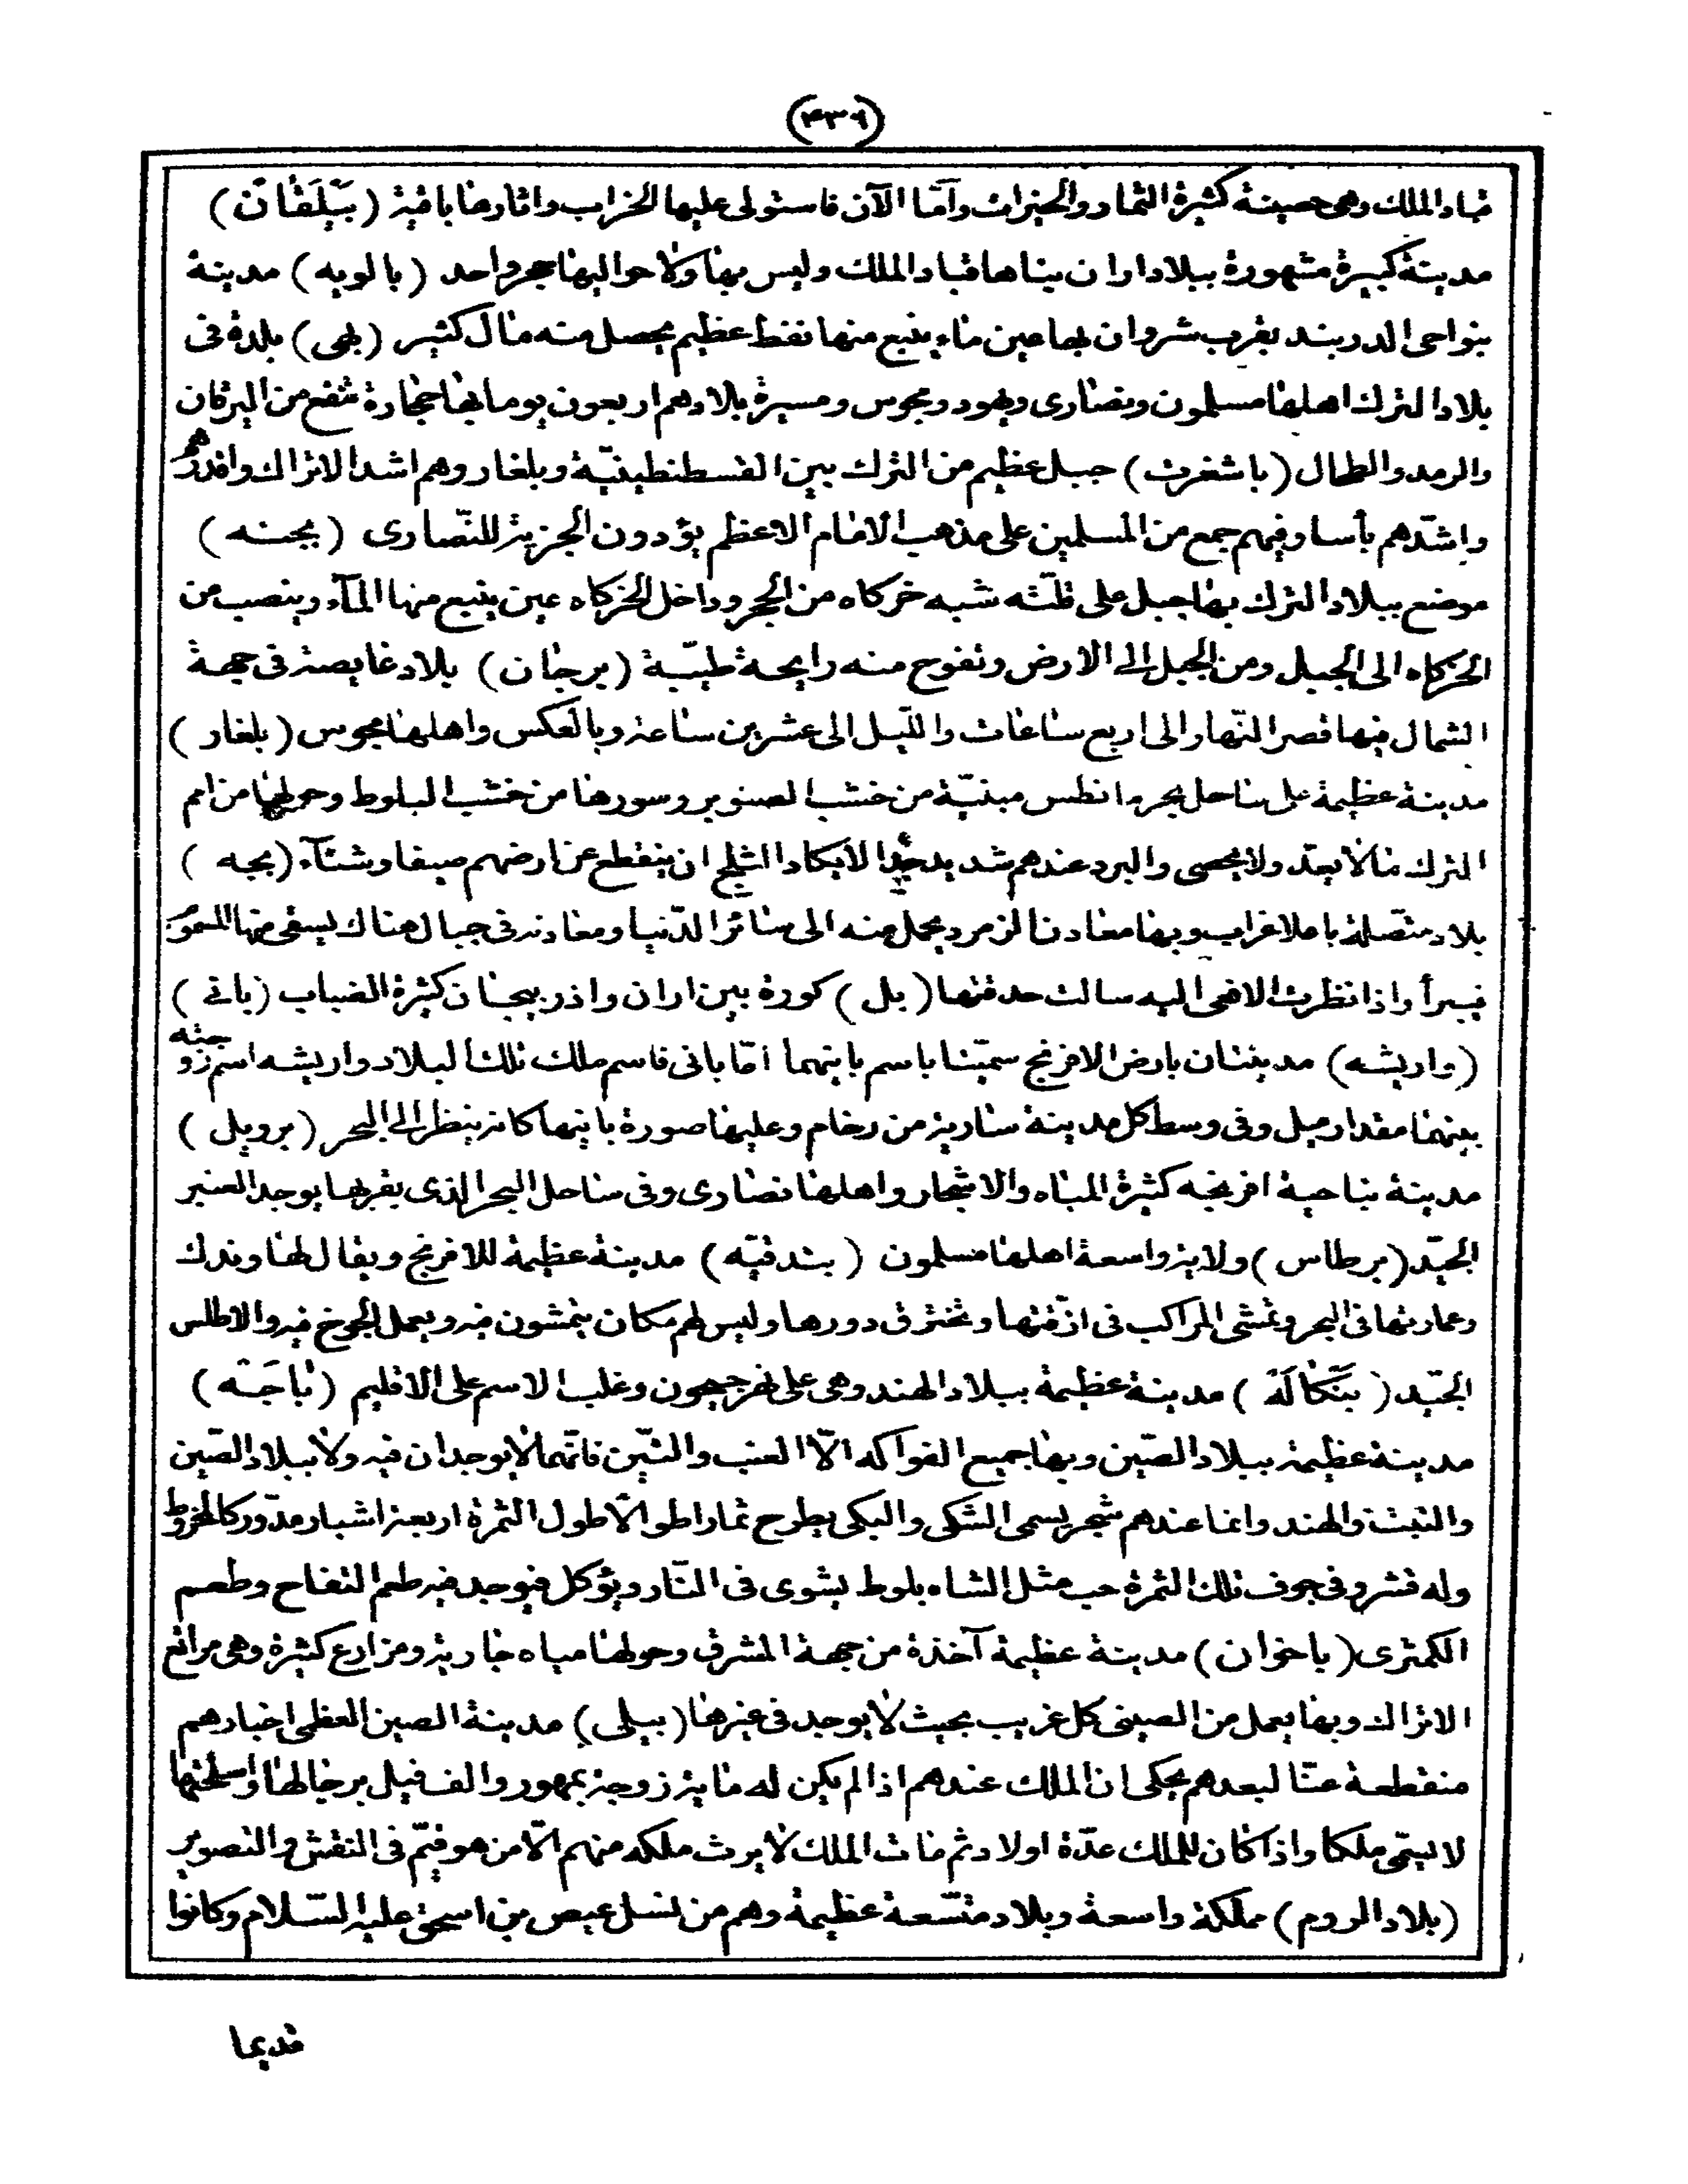 (٤٣٦)
قباد الملك وهى حصينة كثيرة الثمار والخيرات وأمّا الآن فاستولى عليها الخراب واثارها باقية (بَيْلَقَان)
مدينة كبيرة مشهورة ببلاد اران بناها قباد الملك وليس بها ولا حواليها حجر واحد (بالويه) مدينة
بنواحى الدربند بقرب شروان بها عين ماء ينبع منها نفط عظيم يحصل منه مال كثير (بلحى) بلدة فى
بلاد الترك اهلها مسلمون ونصارى ويهود ومجوس ومسيرة بلادهم اربعون يوما بها حجارة تنفع من اليرقان
والرمد والطحال (باشغرت) جبل عظيم من الترك بين القسطنطينيّة وبلغار وهم اشد الاتراك واقدرهم
واشدّهم بأسا وفيهم جمع من المسلمين على مذهب الامام الاعظم يؤدون الجزية للنّصارى (بجنه)
موضع ببلاد الترك بها جبل على قلّته شبه خركاه من الحجر وداخل الخركاه عين ينبع منها المآء وينصب من
الخركاه الى الجبل ومن الجبل الى الارض وتفوح منه رايحة طيبّة (برجان) بلاد غايصة فى جهة
الشمال فيها قصر النّهار الى اربع ساعات والليّل الى عشرين ساعة وبالعكس واهلها مجوس (بلغار)
مدينة عظيمة على ساحل بحر مانطس مبنيّة من خشب الصنوبر وسورها من خشب البلوط وحولها من امم
الترك مالا يعدّ ولا يحصى والبرد عندهم شديد جدّا لا يكاد الثلج ان ينقطع عن ارضهم صيفا وشتآء (بجه)
بلاد متّصلة باعلا غراب وبها معادن الزمرد يحمل منه الى سائر الدّنيا ومعادنه فى جبال هناك يسقى منها المسموم
فيبرأ واذا نظرت الافعى اليه سالت حدقتها (بل) كورة بين اران واذربيجان كثيرة الضباب (بانى)
(واريشه) مدينتان بارض الافرنج سميّتا باسم بانيهما أمّا بانى فاسم ملك تلك البلاد واريشه اسم زوجته
بينهما مقدار ميل وفى وسط كل مدينة سارية من رخام وعليها صورة بانيها كانه ينظر الى البحر (برويل)
مدينة بناحية افرنجه كثيرة المياه والاشجار واهلها نصارى وفى ساحل البحر الذى يقربها يوجد العنبر
الجيّد (برطاس) ولاية واسعة اهلها مسلمون (بندقيّه) مدينة عظيمة للافرنج ويقال لها وندك
وعمارتها فى البحر وتمشى المراكب فى ازقّتها وتخترق دورها وليس لهم مكان يتمشون فيه ويعمل الجوخ فيه والاطلس
الجيّد (بَنْكَالَة) مدينة عظيمة ببلاد الهند وهى على نهر جيحون وغلب الاسم على الاقليم (بَاجَه)
مدينة عظيمة ببلاد الصّين وبها جميع الفواكه الاّ العنب والتّين فانّهما لا يوجدان فيه ولا ببلاد الصّين
والتبت والهند وانما عندهم شجر يسمى الشكى والبكى يطرح ثمارا طوالا طول الثمرة اربعة اشبار مدّور كالمخروط
وله قشر وفى جوف تلك الثمرة حب مثل الشاه بلوط يشوى فى النّار ويؤكل فيوجد فيه طعم التفاح وطعم
الكمثرى (باخوان) مدينة عظيمة آخذة من جهة المشرق وحولها مياه جارية ومزارع كثيرة وهى مراتع
الاتراك وبها يعمل من الصينى كل غريب بحيث لا يوجد فى غيرها (بيلى) مدينة الصين العظمى اخبارهم
منقطعة عنّا لبعدهم يحكى ان الملك عندهم اذا لم يكن له ماية زوجة بمهور والف فيل برجالها واسلحتها
لا يسمّى ملكا واذا كان للملك عدّة اولاد ثم مات الملك لا يرث ملكه منهم الاّ من هو قيّم فى النقش والتصوير
(بلاد الروم) مملكة واسعة وبلاد متّسعة عظيمة وهم من نسل عيص بن اسحق عليه السّلام وكانوا
قديما